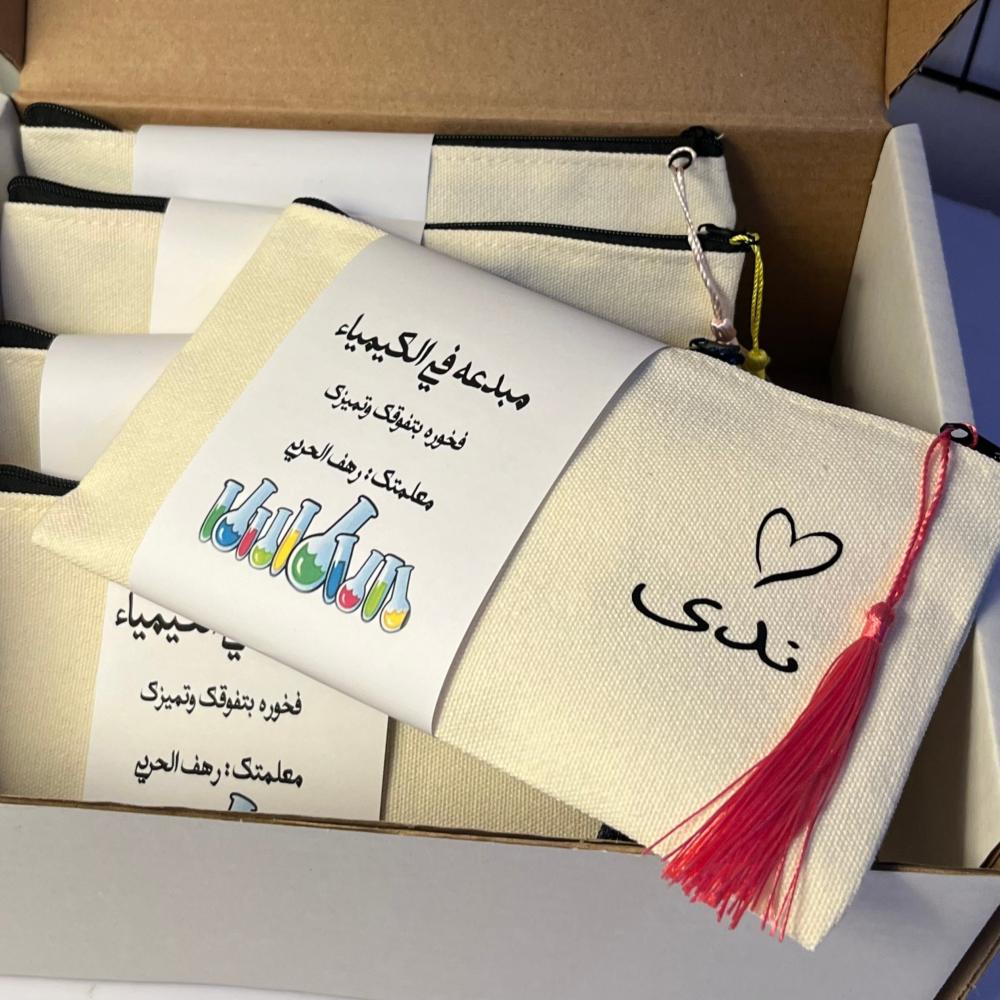 مبدعه في الكيمياء
فخوره بتفوقك وتميزك
معلمتك : رهف الحربي
ندى
في الكيمياء
فخوره بتفوقك وتميزك
معلمتك : رهف الحربي